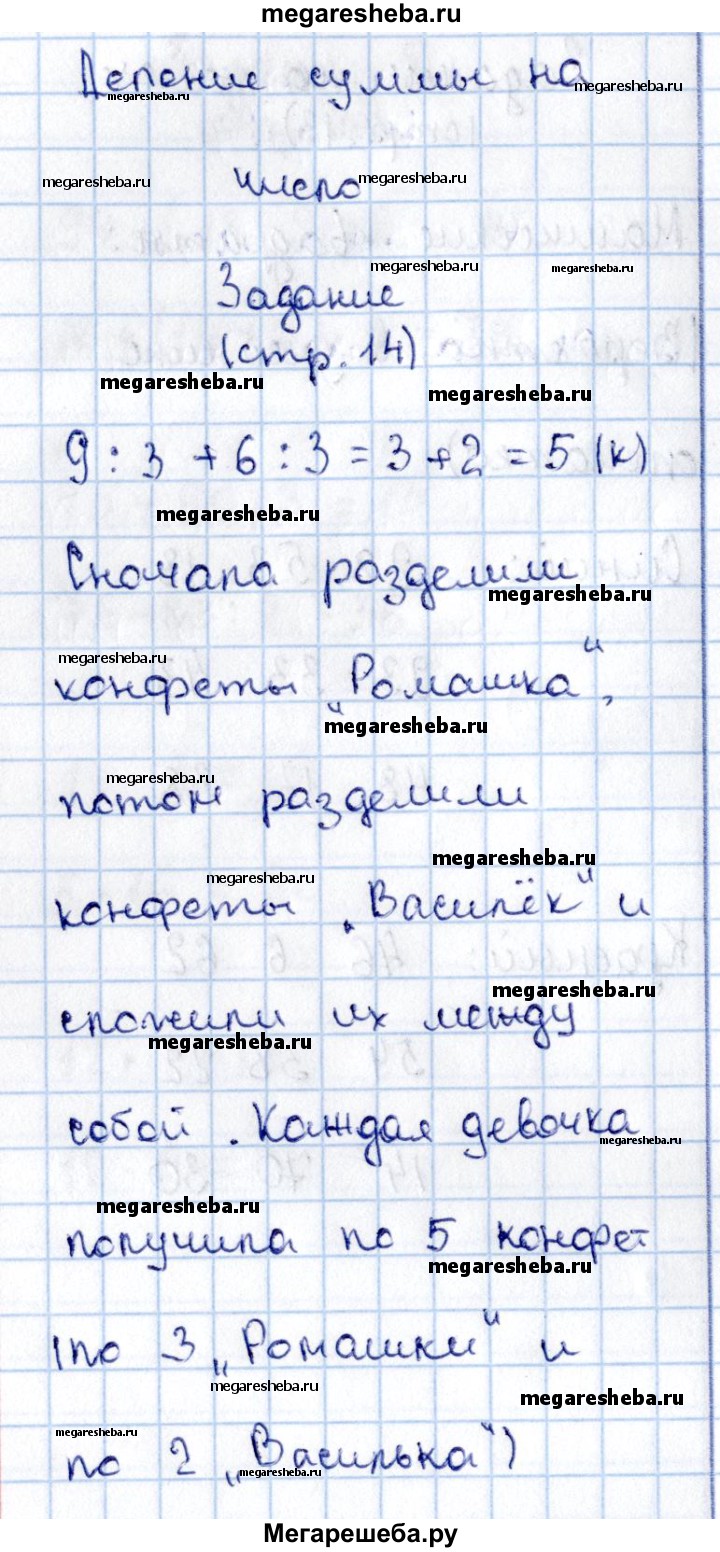 megaresheba.ru
Деление суммы на
megaresheba.ru megaresheba.ru
число
megaresheba.ru megaresheba.ru
Задание
megaresheba.ru megaresheba.ru
(стр. 14)
megaresheba.ru megaresheba.ru
9 : 3 + 6 : 3 = 3 + 2 = 5 (к)
megaresheba.ru
Сначала разделили
megaresheba.ru
megaresheba.ru
конфеты „Ромашка“,
megaresheba.ru
megaresheba.ru
потом разделили
megaresheba.ru
megaresheba.ru
конфеты „Василёк“ и
megaresheba.ru
сложили их между
megaresheba.ru
собой. Каждая девочка
megaresheba.ru
megaresheba.ru
получила по 5 конфет
megaresheba.ru
(по 3 „Ромашки“ и
megaresheba.ru megaresheba.ru
megaresheba.ru
по 2 „Василька“)
megaresheba.ru
Мегарешеба.ру